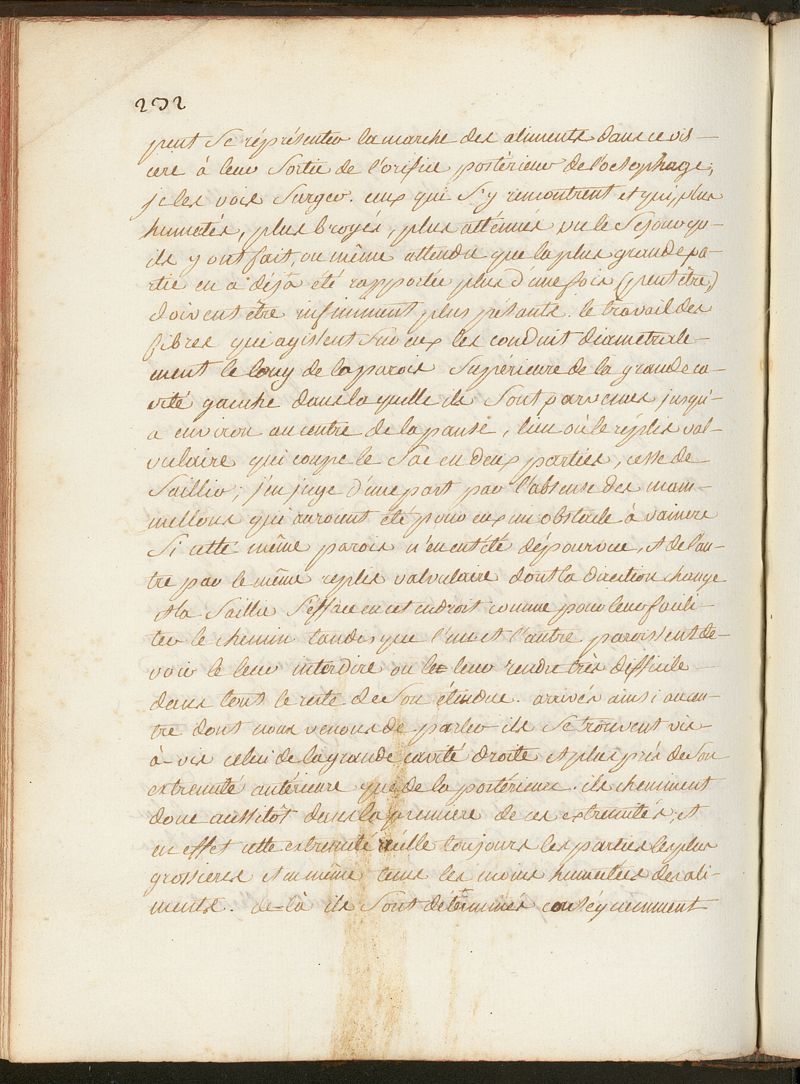 232
peut se représenter la marche des aliments dans ce vis-
cere à leur sortie de l'orifice postérieur de l'oesophage;
je les vois surgeo. ceux qui s'y rencontrent et qui, plus
humectés, plus broyés, plus atténués vu le séjour qu-
ils y ont fait, ou même attendu que la plus grande pa-
rtie en a déjà été rapportée plus d'une fois (peut être)
doivent être infiniment plus pesants. le travail des
fibres qui agissent sur eux les conduit diametrale-
ment le long de la parois supérieure de la grande ca-
vité gauche dans laquelle ils sont parvenus jusqu'-
a environ au centre de la panse, lieu où le réplis val-
vulaire qui coupe le sac en deux parties, cesse de
saillir; j'en juge d'une part par l'absense des mam-
mellons qui auroient été pour eux un obstacle à vaincre
si cette même parois n'en eut été dépourvue, et de l'au-
tre par le même replis valvulaire dont la direction change
et la saillie s'efface en cet endroit comme pour leur facili-
ter le chemin tandis que l'un et l'autre paroissent de-
voir le leur interdire ou le leur rendre très difficile
dans tout le reste de son étendue. arrivés ainsi au cen-
tre dont nous venons de parler ils se trouvent vis-
à-vis celui de la grande cavité droite et plus près de son
extremité antérieure que de la postérieure. ils cheminent
donc aussitôt dans la premiere de ces extremités, et
en effet cette extremité recille toujours les parties les plus
grossieres et en même tems les moins humectées des ali-
ments. de-là ils sont déterminés conséquemment